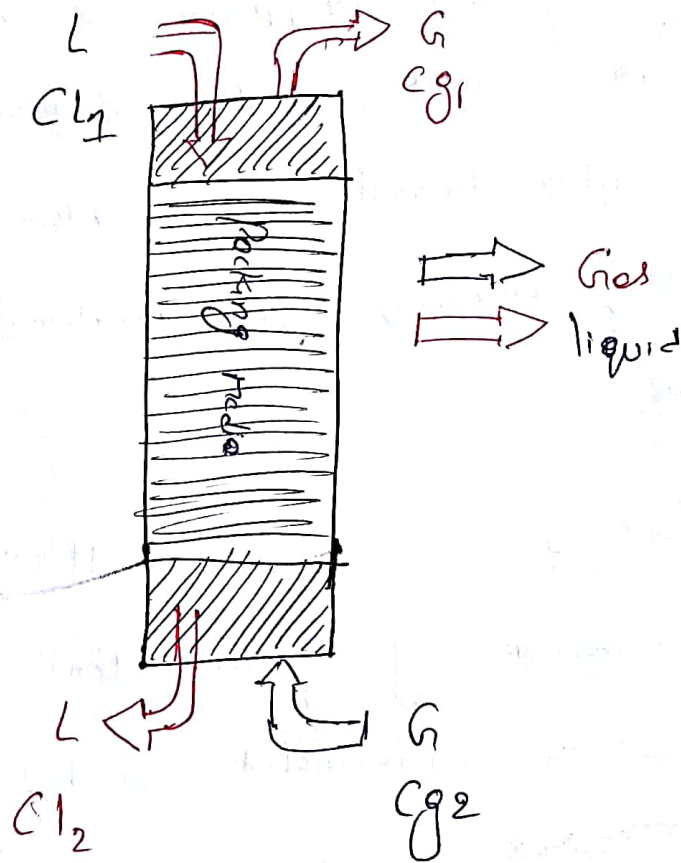 L
G
CL1
Cg1
Packing media
Gas
liquid
L
G
Cl2
Cg2